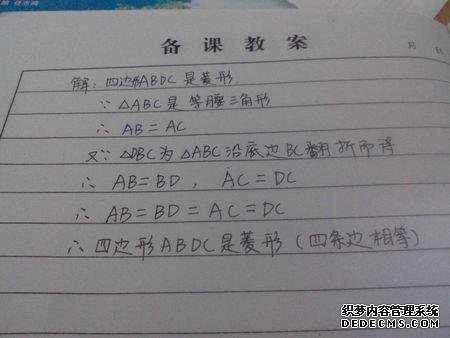 备课教案
月 日
解：四边形ABDC是菱形
∵ △ABC是等腰三角形
∴ AB=AC
又∵ △DBC为△ABC沿底边BC翻折而得
∴ AB=BD，AC=DC
∴ AB=BD=AC=DC
∴ 四边形ABDC是菱形（四条边相等）
织梦内容管理系统
DEDECMS.COM